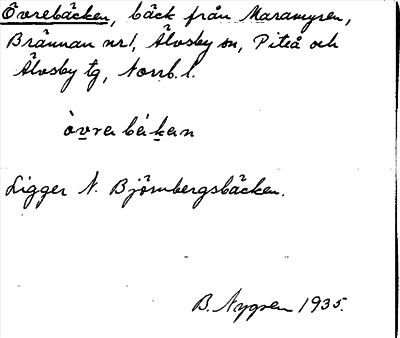 Övrebäcken, bäck från Maramyren,
Brännan nr 1, Älvsby sn, Piteå och
Älvsby tg, Norrb. l.
òvrebä́ḵan
Ligger N. Björnbergsbäcken.
B. Nygren 1935.